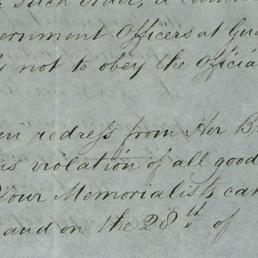 such order, a
ernment Officers at Gua
not to obey the Oficia
redress from Her B
is violation of all good
Your Memorialists can
and on the 28th of